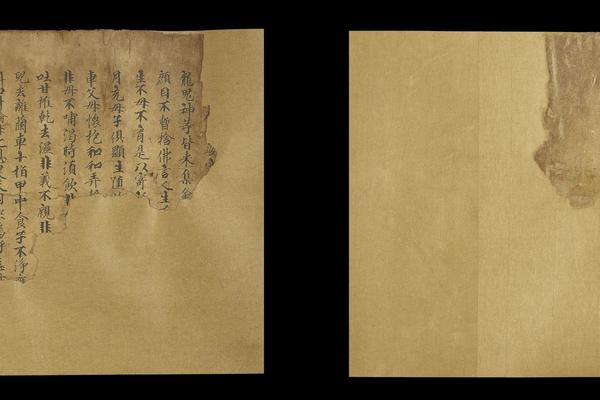 龍鬼神等皆來集會
顏目不暫捨佛言人生
生不母不育是以寄
月充母子俱顯生墮
車父母懷抱和和弄
非母不哺渴時須飲
吐甘推乾去濕非義不親非
兒去離蘭車十指甲中食子不淨應